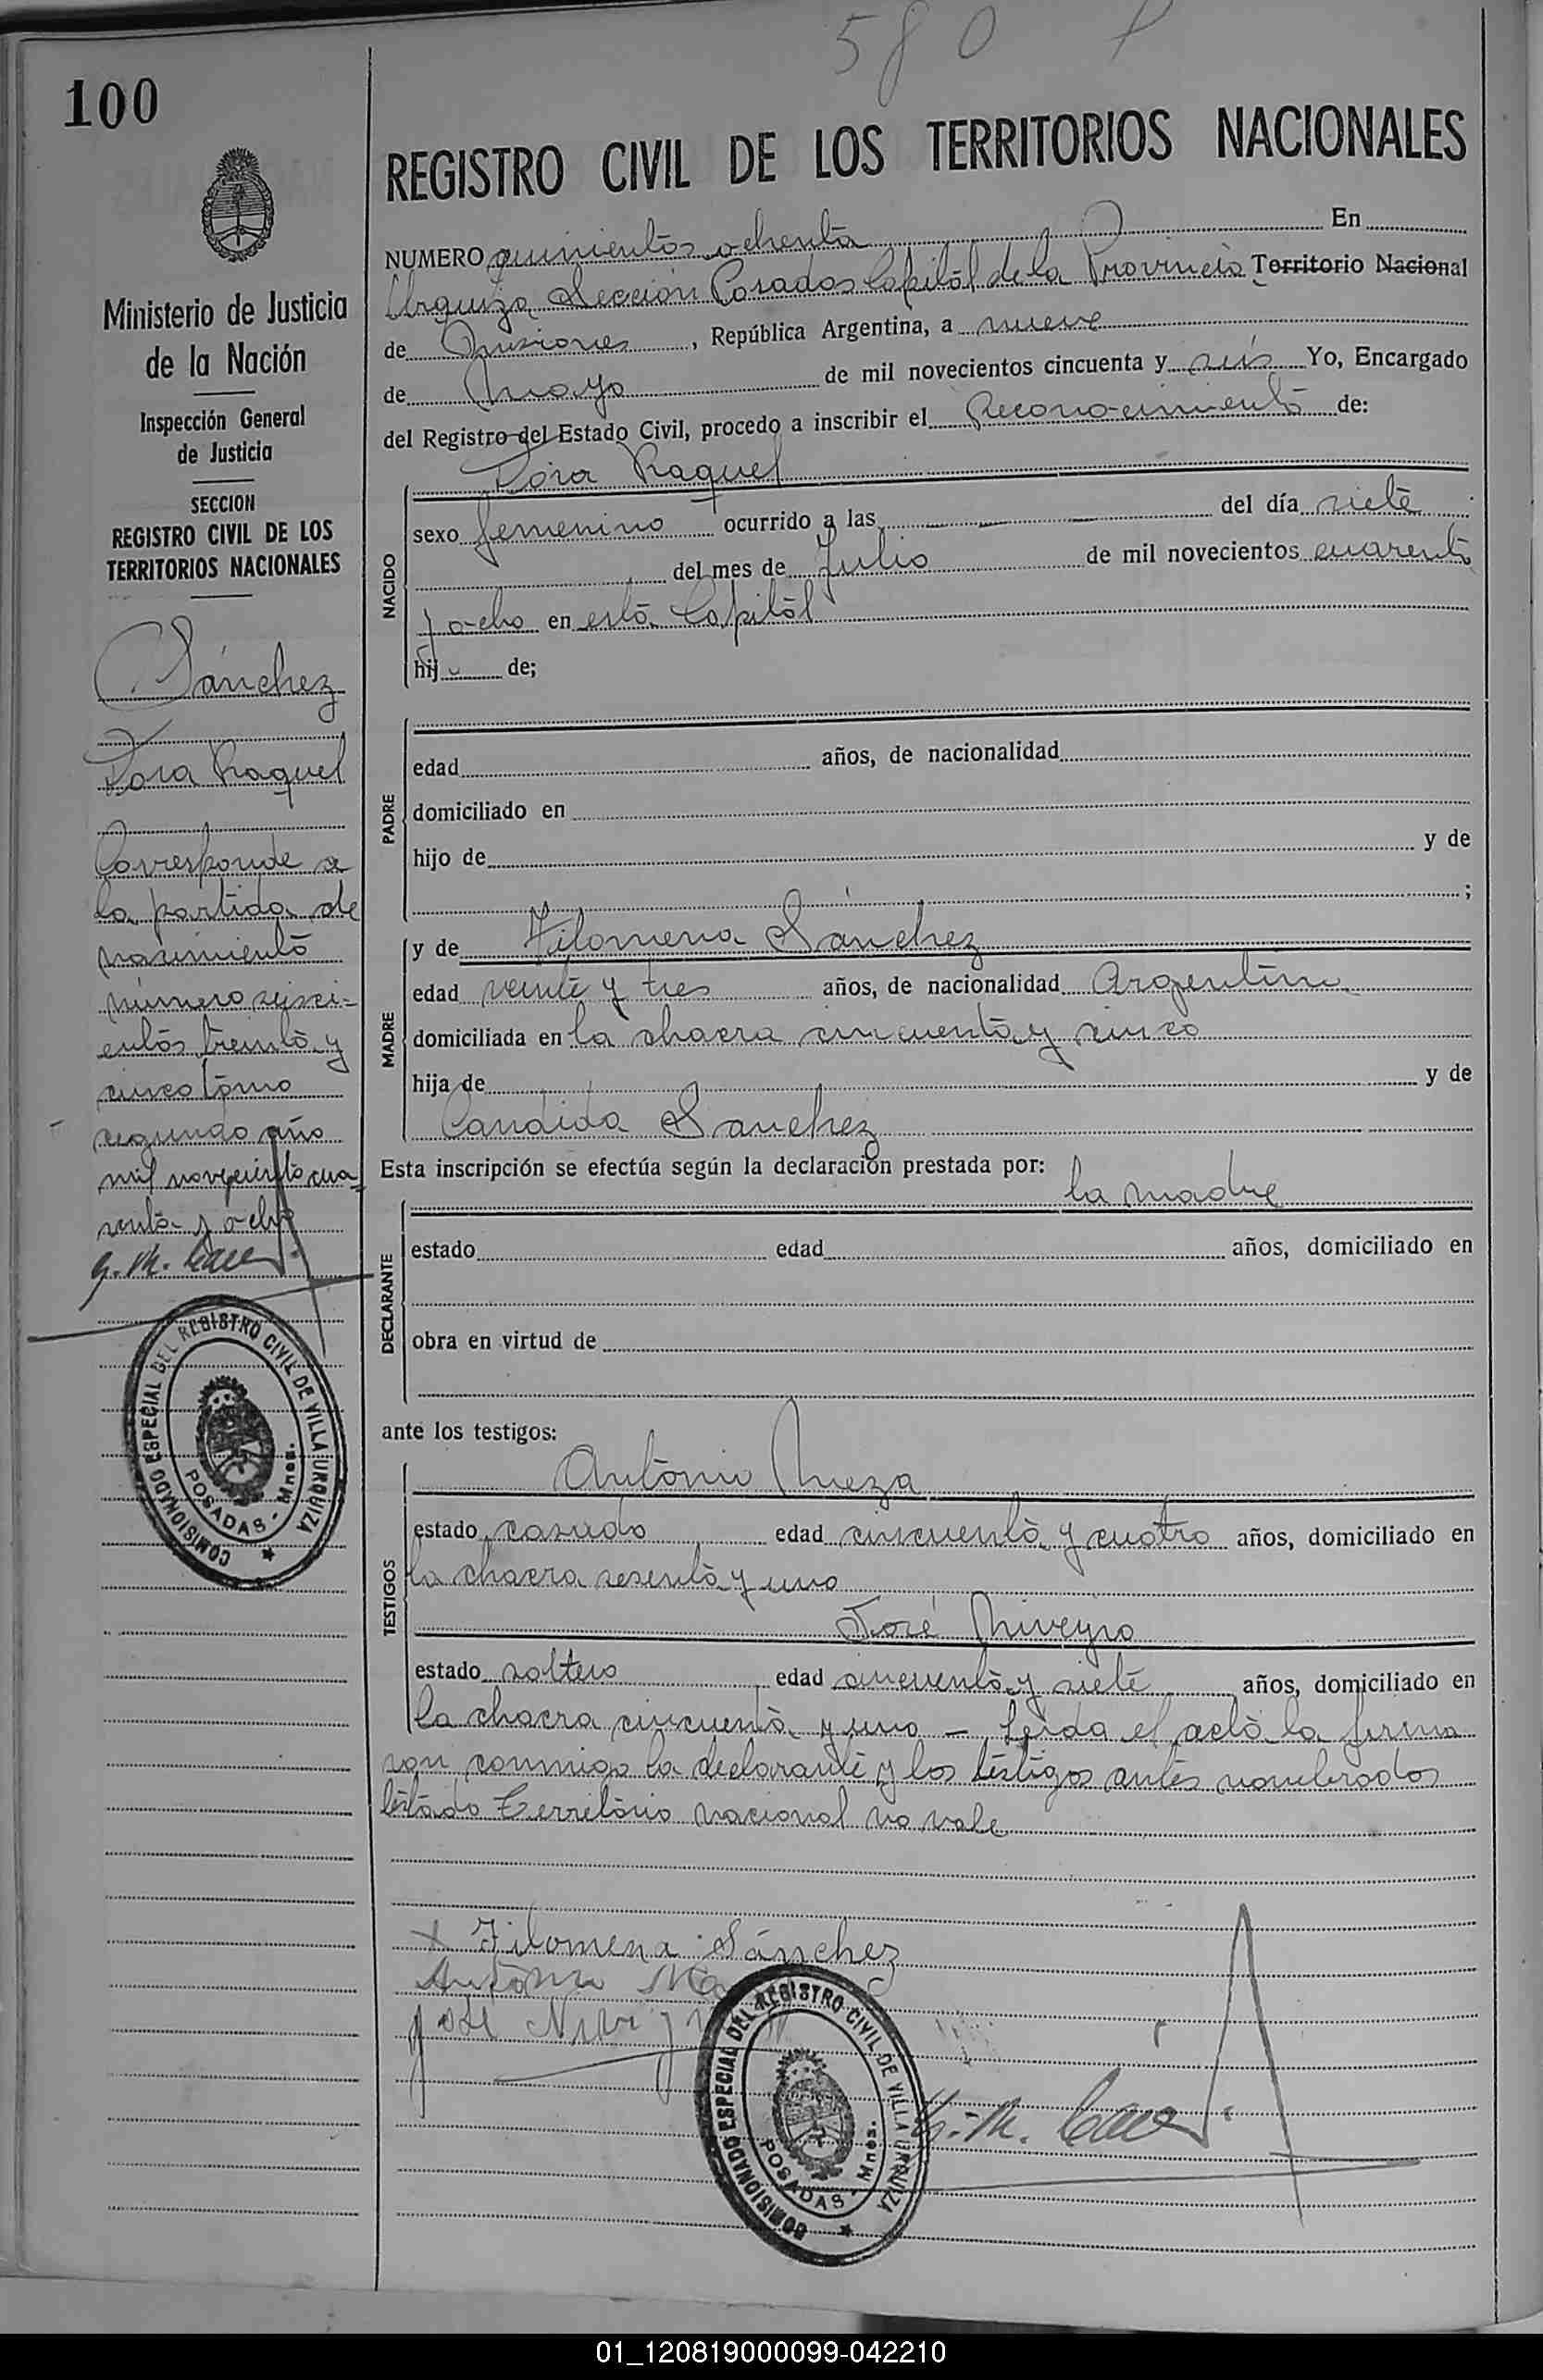 580
100
REGISTRO CIVIL DE LOS TERRITORIOS NACIONALES
Ministerio de Justicia
de la Nación
Inspección General
de Justicia
SECCION
REGISTRO CIVIL DE LOS
TERRITORIOS NACIONALES
Sánchez
Raquel
Corresponde a
la partida de
nacimiento
número seisci-
entos treinta y
cinco tomo
segundo año
mil novecientos cua
renta y ocho
COMISIONADO ESPECIAL DEL REGISTRO CIVIL DE VILLA URQUIZA
POSADAS - Mnes.
NUMERO quinientos ochenta En
Urquiza Sección Posadas Capital de la Provincia Territorio Nacional
de Misiones, República Argentina, a nueve
de Mayo de mil novecientos cincuenta y seis Yo, Encargado
del Registro del Estado Civil, procedo a inscribir el Reconocimiento de:
Raquel
NACIDO
sexo femenino ocurrido a las del día siete
del mes de Julio de mil novecientos cuarenta
y ocho en esta Capital
hij de;
PADRE
edad años, de nacionalidad
domiciliado en
hijo de y de
;
MADRE
y de Filomena Sánchez
edad veinte y tres años, de nacionalidad Argentina
domiciliada en la chacra cincuenta y cinco
hija de y de
Candida Sanchez
Esta inscripción se efectúa según la declaración prestada por:
la madre
DECLARANTE
estado edad años, domiciliado en
obra en virtud de
ante los testigos:
TESTIGOS
Antonio Meza
estado casado edad cincuenta y cuatro años, domiciliado en
la chacra sesenta y uno
José
estado soltero edad cincuenta y siete años, domiciliado en
la chacra cincuenta y uno - Leida el acta la firma
ron conmigo la declarante y los testigos antes nombrados
testado Territorio nacional no vale
x Filomena Sánchez
Antonio
José
COMISIONADO ESPECIAL DEL REGISTRO CIVIL DE VILLA URQUIZA
POSADAS - Mnes.
01_120819000099-042210